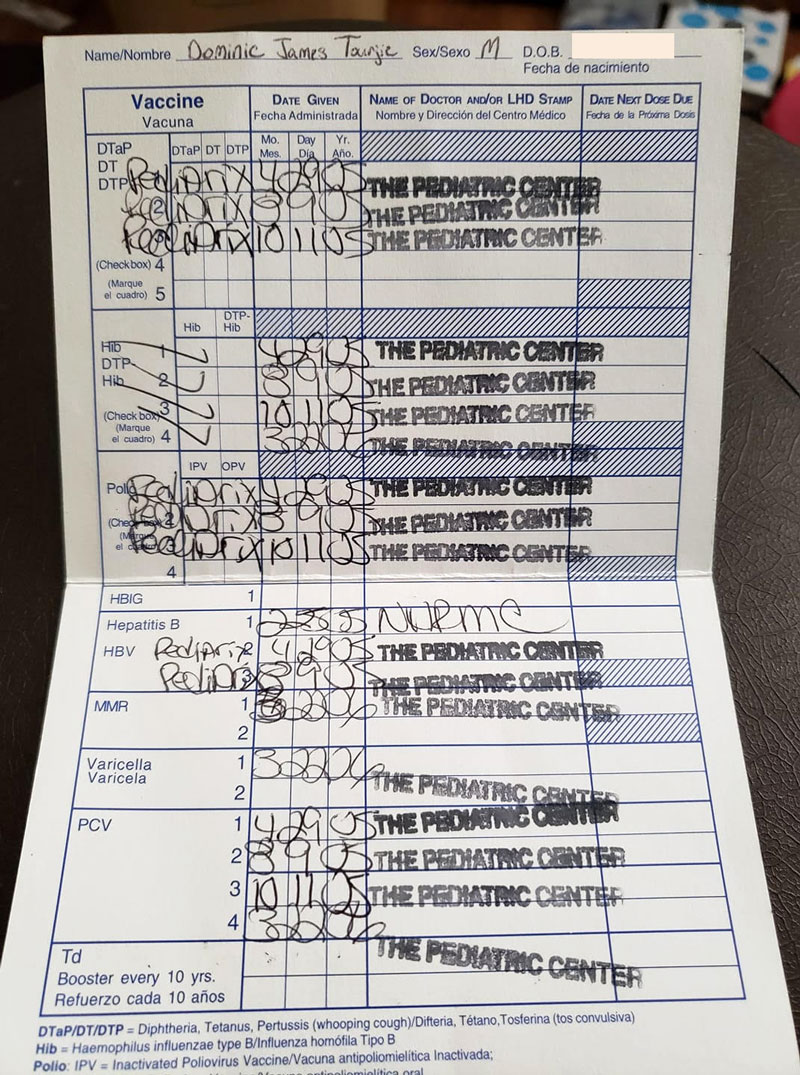 Name/Nombre Dominic James Tourjie Sex/Sexo M D.O.B.
Fecha de nacimiento
Vaccine DATE GIVEN NAME OF DOCTOR AND/OR LHD STAMP DATE NEXT DOSE DUE
Vacuna Fecha Administrada Nombre y Dirección del Centro Médico Fecha de la Próxima Dosis
DTaP DTaP DT DTP Mo. Day Yr.
Mes. Día Año.
DT
DTP Pediarix 4 29 05 THE PEDIATRIC CENTER
2 Pediarix 8 9 05 THE PEDIATRIC CENTER
Pediarix 10 11 05 THE PEDIATRIC CENTER
(Check box) 4
(Marque
el cuadro) 5
Hib DTP-
Hib
Hib 1 4 29 05 THE PEDIATRIC CENTER
DTP-
Hib 2 8 9 05 THE PEDIATRIC CENTER
(Check box) 3 10 11 05 THE PEDIATRIC CENTER
(Marque
el cuadro) 4 3 22 06 THE PEDIATRIC CENTER
IPV OPV
Polio Pediarix 4 29 05 THE PEDIATRIC CENTER
(Check box) 2 Pediarix 8 9 05 THE PEDIATRIC CENTER
(Marque
el cuadro) 3 Pediarix 10 11 05 THE PEDIATRIC CENTER
4
HBIG 1
Hepatitis B 1 2 05
HBV Pediarix 2 4 29 05 THE PEDIATRIC CENTER
Pediarix 3 8 9 05 THE PEDIATRIC CENTER
MMR 1 3 22 06 THE PEDIATRIC CENTER
2
Varicella 1 3 22 06
Varicela
2 THE PEDIATRIC CENTER
PCV 1 4 29 05 THE PEDIATRIC CENTER
2 8 9 05 THE PEDIATRIC CENTER
3 10 11 05 THE PEDIATRIC CENTER
4 3 22 06
THE PEDIATRIC CENTER
Td
Booster every 10 yrs.
Refuerzo cada 10 años
DTaP/DT/DTP = Diphtheria, Tetanus, Pertussis (whooping cough)/Difteria, Tétano,Tosferina (tos convulsiva)
Hib = Haemophilus influenzae type B/Influenza homófila Tipo B
Polio: IPV = Inactivated Poliovirus Vaccine/Vacuna antipoliomielítica Inactivada;